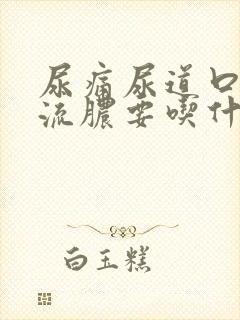 尿痛尿道口
流脓要喫什
白玉糕